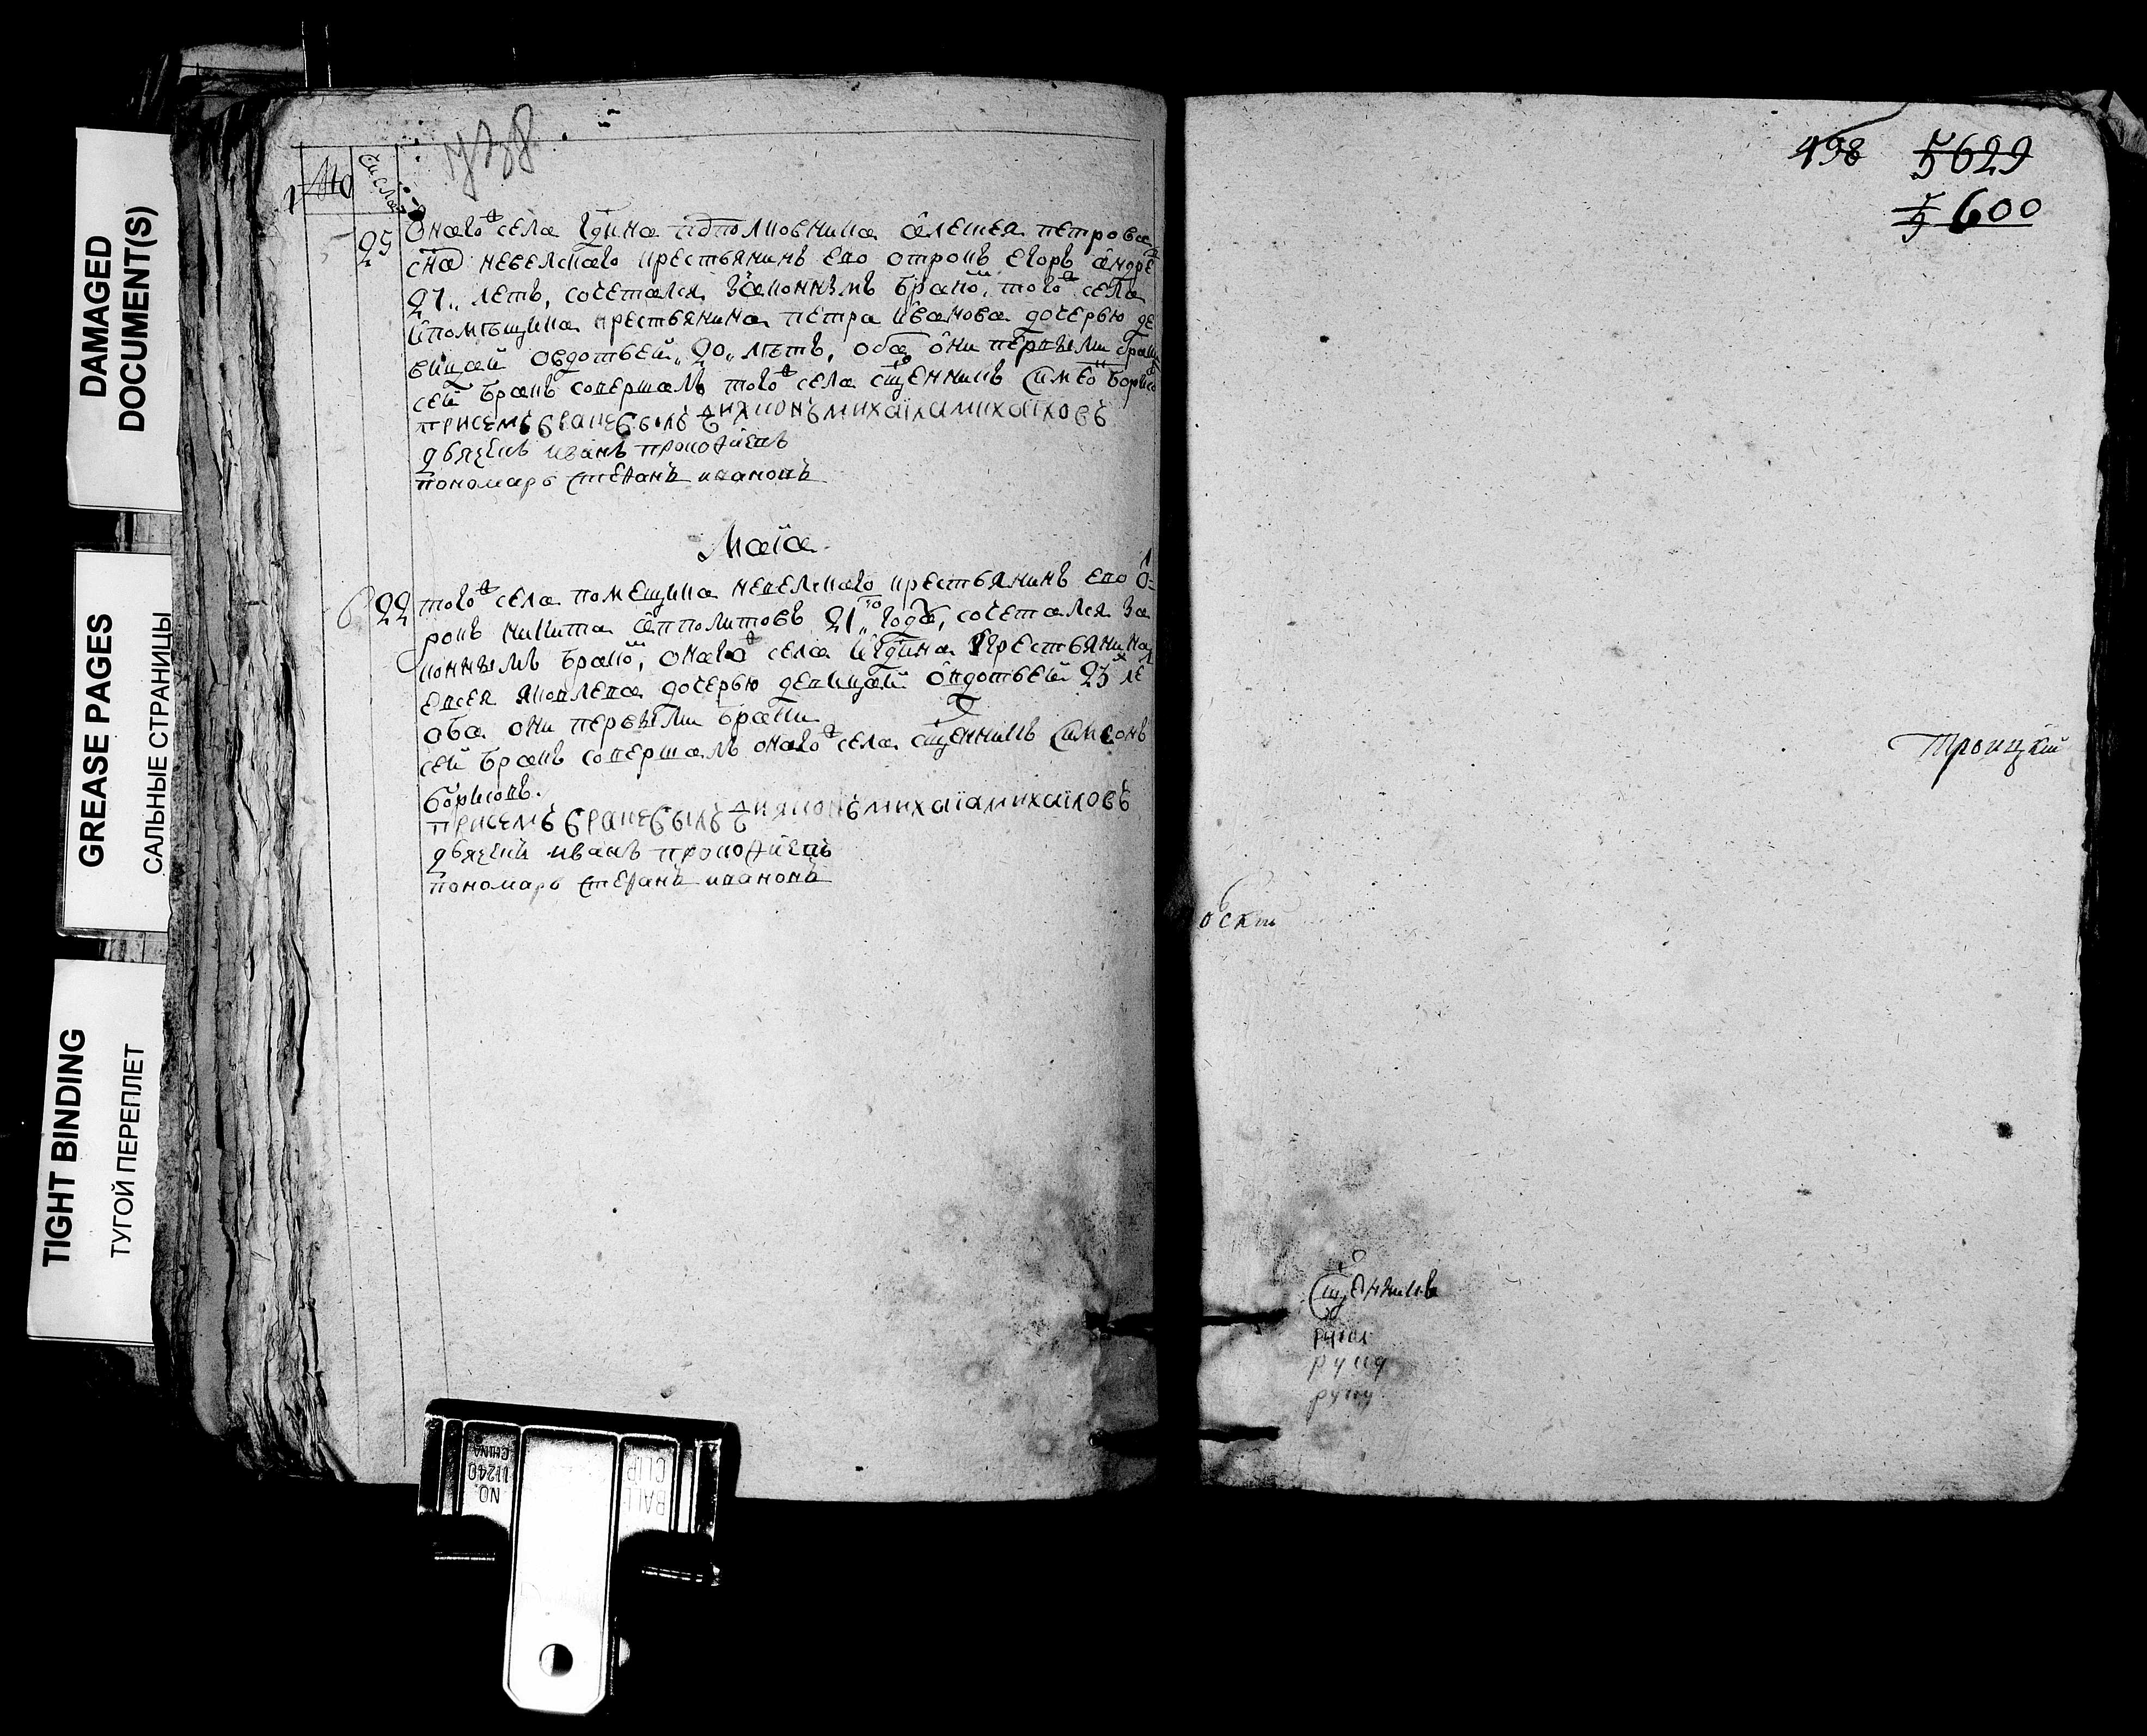 DAMAGED
DOCUMENT(S)
GREASE PAGES
САЛЬНЫЕ СТРАНИЦЫ
TIGHT BINDING
ТУГОЙ ПЕРЕПЛЕТ
числа
25
Онаго ж села гдина пдполковника алеѯея петрова
сна невелскаго крестьянинъ ево отрокъ егоръ андре
27 летъ, сочетался законнымъ брако, того ж села
помѣщика крестьянина петра иванова дочерью де
вицай овдотьей 20 летъ, оба они первыми браки
сей бракъ совершалъ того ж села сщенникъ Симео борисо
присемъ браке былъ дияконъ михаїла михаїловъ
дьячекъ иванъ прокофиевъ
пономарь Стефанъ ивановъ
Маїа
6 22 того ж села помещика невелскаго крестьянинъ ево о
рокъ никита апполитовъ 21 го года, сочетался за
коннымъ брако, онаго ж села гдина крестьянина
евсея яковлева дочерью девицай овдотьей 23 х ле
оба они первыми браки
сей бракъ совершалъ онаго ж села сщенникъ Симеонъ
борисовъ.
присемъ браке былъ дияконъ михаїла михаїловъ
дьячекъ иванъ прокофиевъ
пономарь Стефанъ ивановъ
498 5629
5600
Троицкий
Сщенникъ
руку
руку
руку
NO.
11240
CHINA
BALL
CLIP